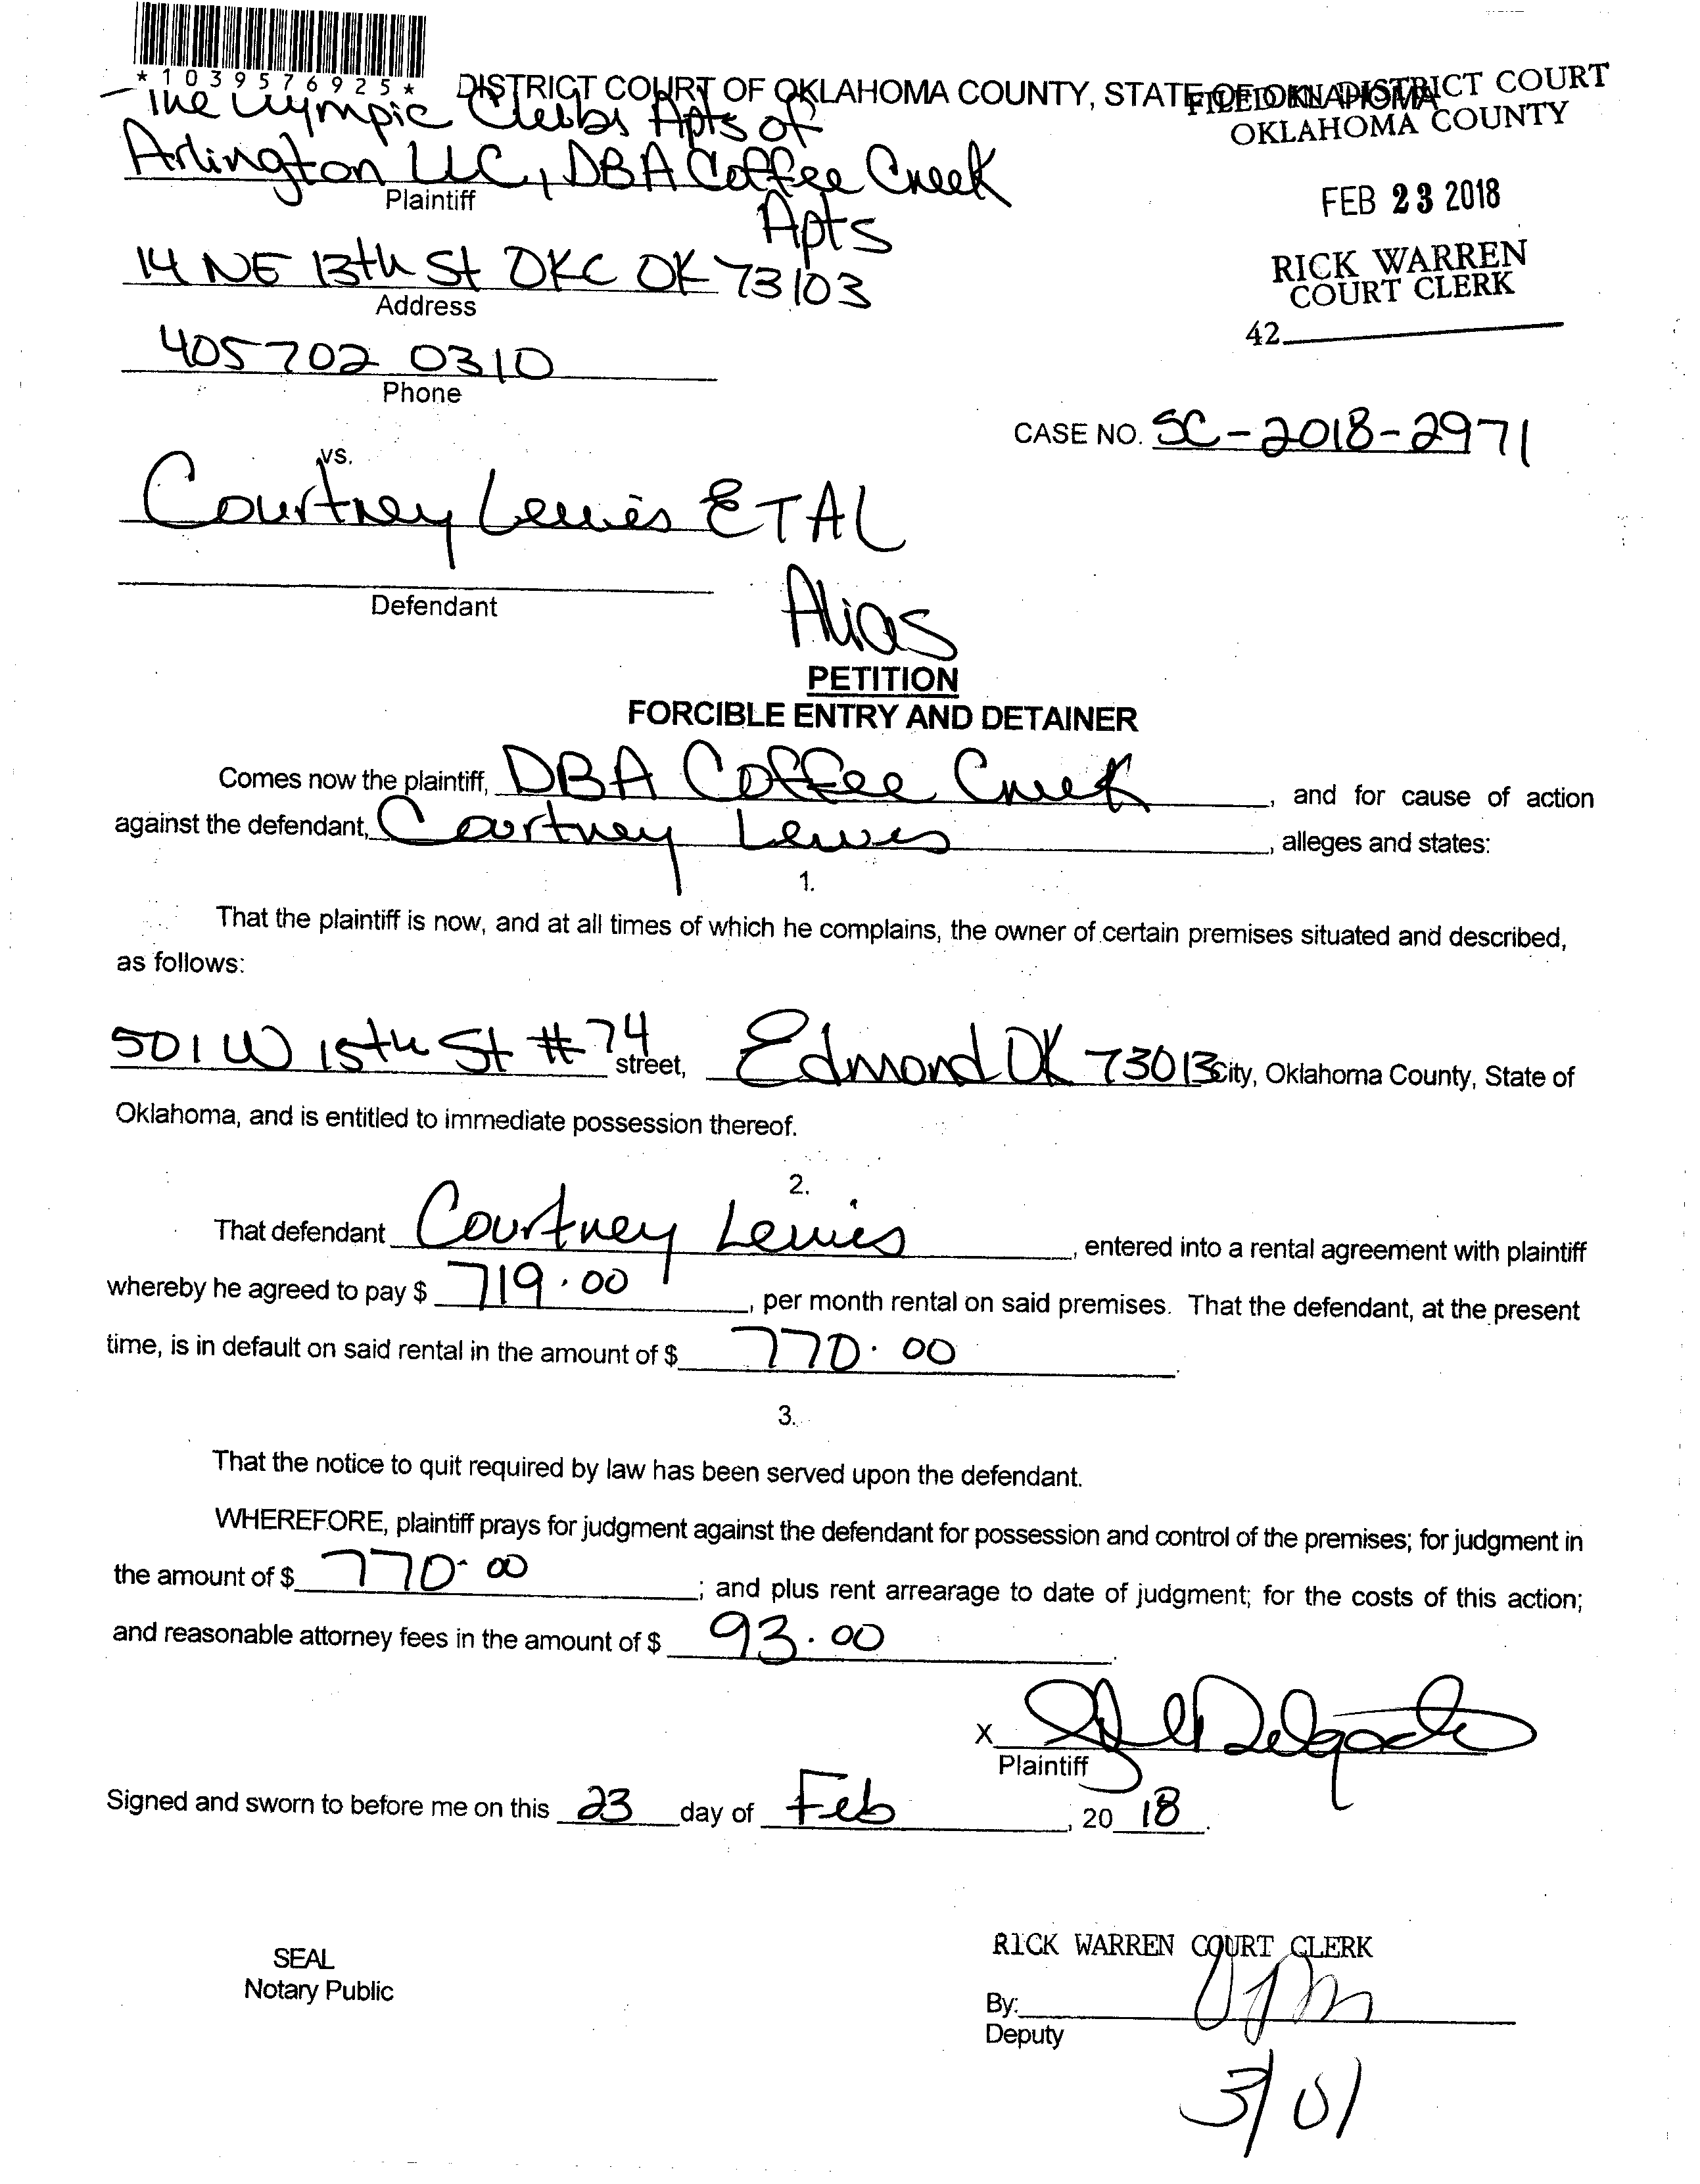 *1039576925*
DISTRICT COURT OF OKLAHOMA COUNTY, STATE OF OKLAHOMA
FILED IN DISTRICT COURT
OKLAHOMA COUNTY
The Olympic Clubs Apts of
Arlington LLC, DBA Coffee Creek
Plaintiff
Apts
FEB 23 2018
14 NE 13th St OKC OK 73103
Address
RICK WARREN
COURT CLERK
42
405 702 0310
Phone
CASE NO. SC-2018-2971
vs.
Courtney Lewis ETAL
Defendant
Alias
PETITION
FORCIBLE ENTRY AND DETAINER
Comes now the plaintiff, DBA Coffee Creek, and for cause of action
against the defendant, Courtney Lewis, alleges and states:
1.
That the plaintiff is now, and at all times of which he complains, the owner of certain premises situated and described,
as follows:
501 W 15th St #74 street, Edmond OK 73013 City, Oklahoma County, State of
Oklahoma, and is entitled to immediate possession thereof.
2.
That defendant Courtney Lewis, entered into a rental agreement with plaintiff
whereby he agreed to pay $ 719.00, per month rental on said premises. That the defendant, at the present
time, is in default on said rental in the amount of $ 770.00.
3.
That the notice to quit required by law has been served upon the defendant.
WHEREFORE, plaintiff prays for judgment against the defendant for possession and control of the premises; for judgment in
the amount of $ 770.00; and plus rent arrearage to date of judgment; for the costs of this action;
and reasonable attorney fees in the amount of $ 93.00.
X Delgado
Plaintiff
Signed and sworn to before me on this 23 day of Feb, 20 18.
SEAL
Notary Public
RICK WARREN COURT CLERK
By:
Deputy
3/01